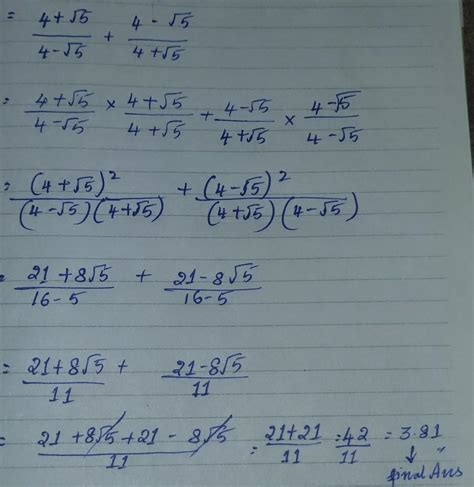 = 4+√5/4-√5 + 4-√5/4+√5
= 4+√5/4-√5 × 4+√5/4+√5 + 4-√5/4+√5 × 4-√5/4-√5
= (4+√5)²/(4-√5)(4+√5) + (4-√5)²/(4+√5)(4-√5)
= 21+8√5/16-5 + 21-8√5/16-5
= 21+8√5/11 + 21-8√5/11
= 21+8√5+21-8√5/11 = 21+21/11 = 42/11 = 3.81
↓
final Ans